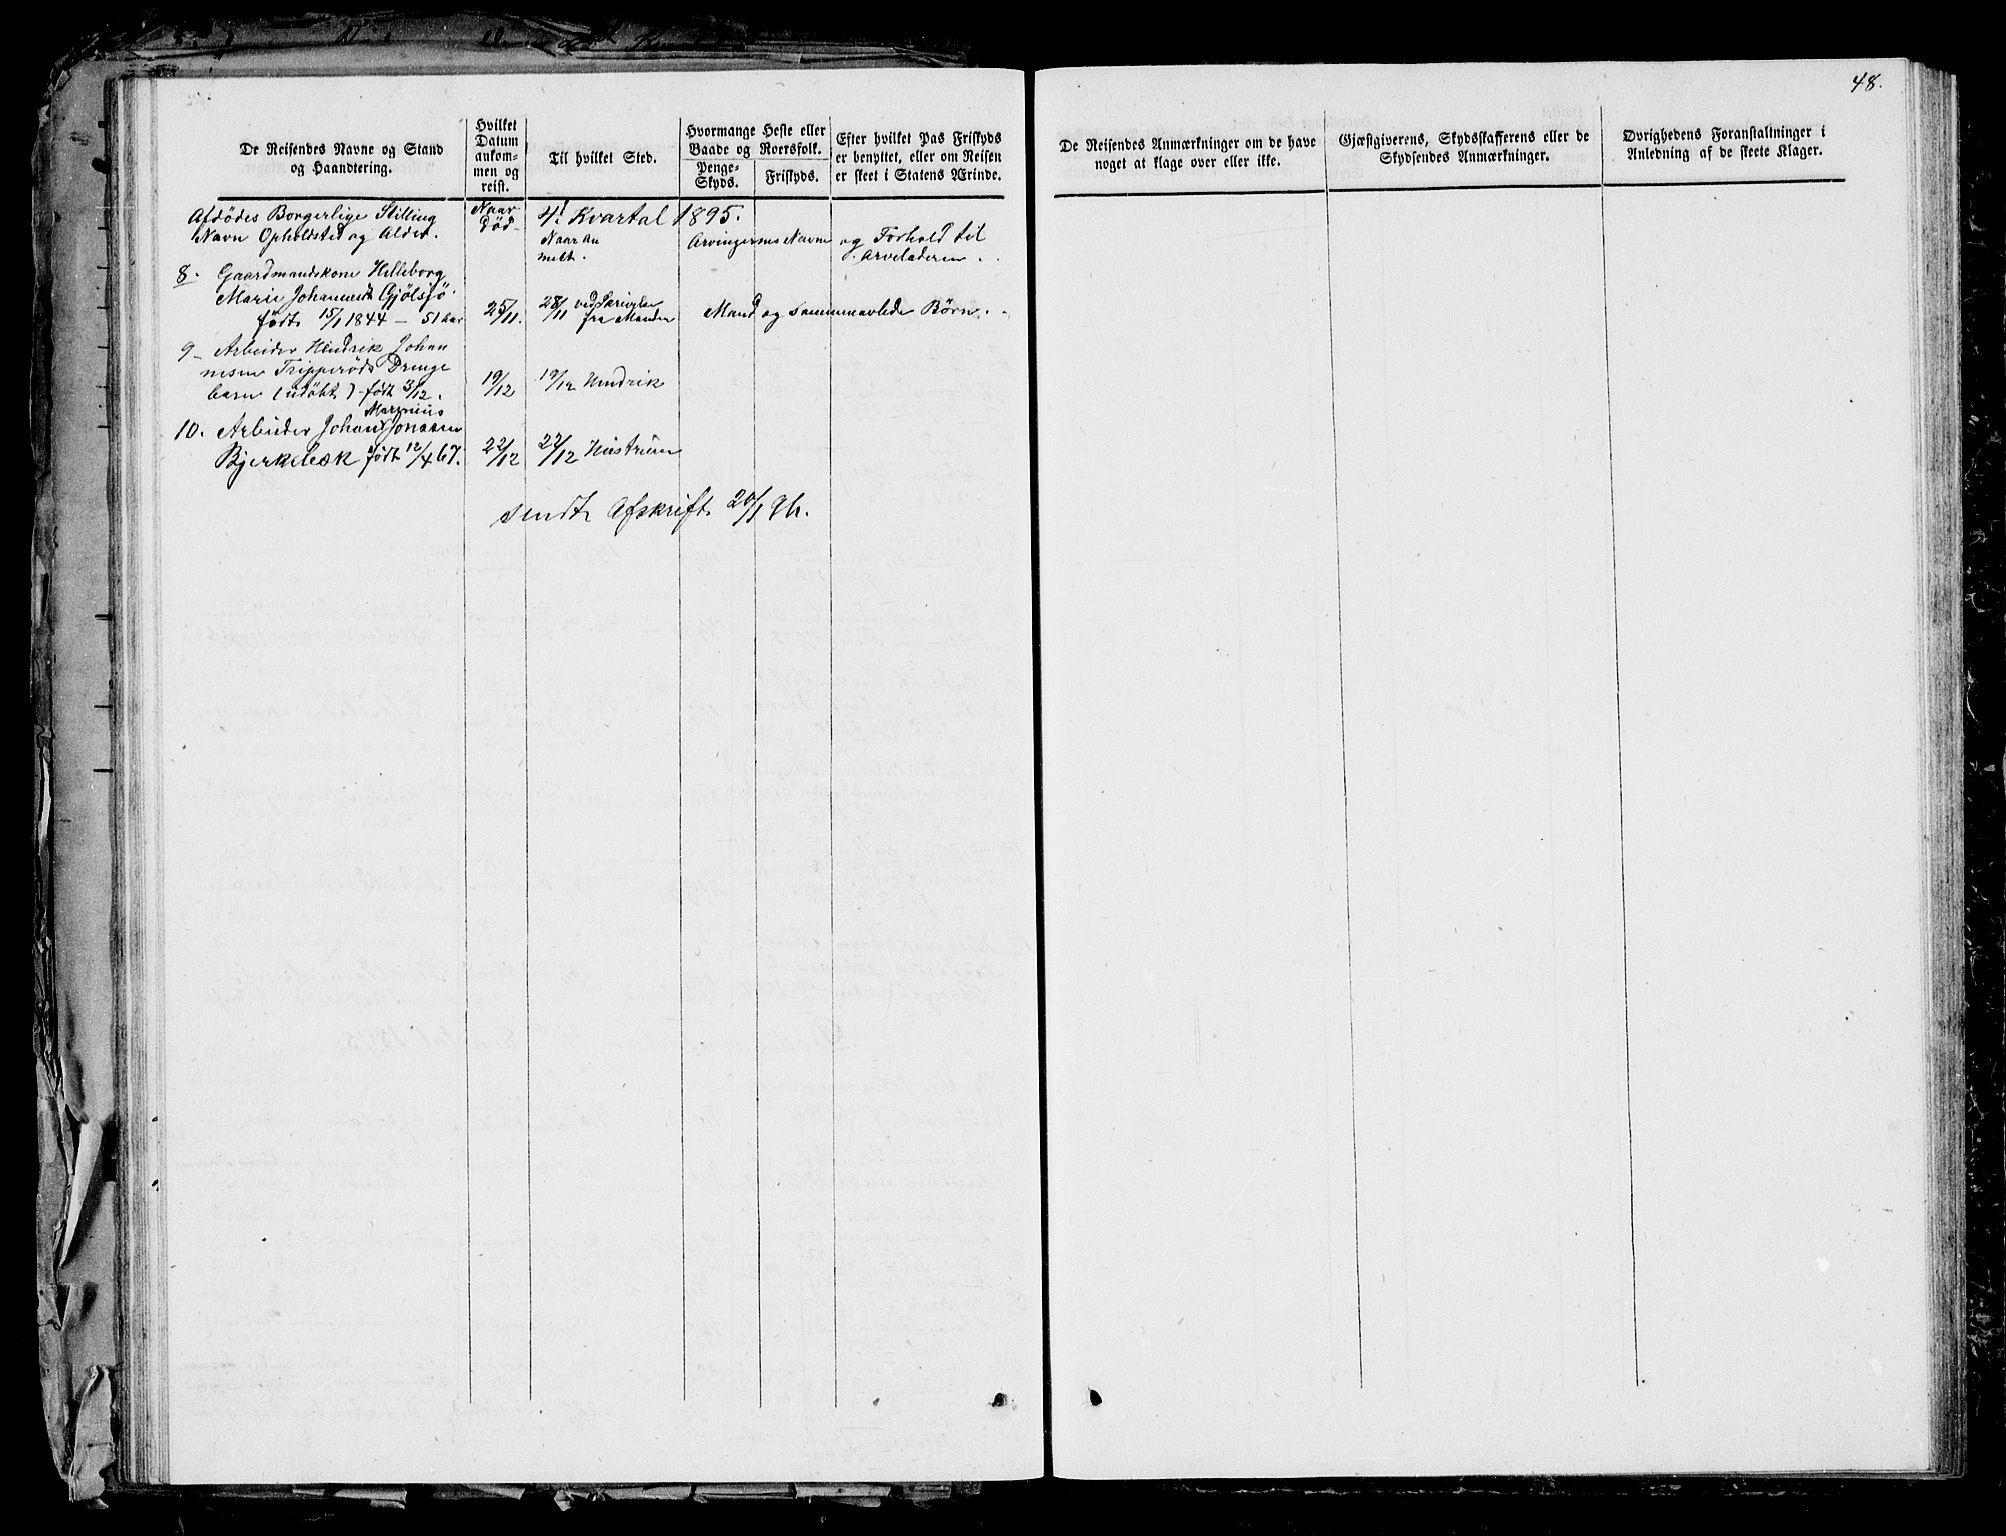 48.
De Reisendes Navne og Stand
og Haandtering.
Hvilket
Datum
ankom-
men og
reist.
Til hvilket Sted.
Hvormange Heste eller
Baade og Roersfolk.
Penge-
Skyds.
Friskyds.
Efter hvilket Pas Friskyds
er benyttet, eller om Reisen
er skeet i Statens Ærinde.
De Reisendes Anmærkninger om de have
noget at klage over eller ikke.
Gjæstgiverens, Skydsskafferens eller de
Skydsendes Anmærkninger.
Øvrighedens Foranstaltninger i
Anledning af de skeete Klager.
Afdödes Borgerlige Stilling
Navn Opholdsted og Alder.
Naar
död
4de Kvartal 1895.
Naar an
meldt.
Arvingernes Navne og Forhold til
Arveladeren.
8. Gaardmandskone Helleborg
Marie Johannesdt Gjölsjö
födt 15/1 1844 – 51 aar
25/11.
28/11 ved Skrivelse
fra Manden
Mand og sammenavlede Börn.
9 – Arbeider Hendrik Johan
nesen Tripperöds Drenge
barn (udöbt) födt 3/12.
19/12
19/12 Hendrik
10. Arbeider Johan Marenius Jonasen
Bjerkebæk födt 12/4 67.
22/12
27/12 Hustruen
sendt Afskrift 20/1 96.